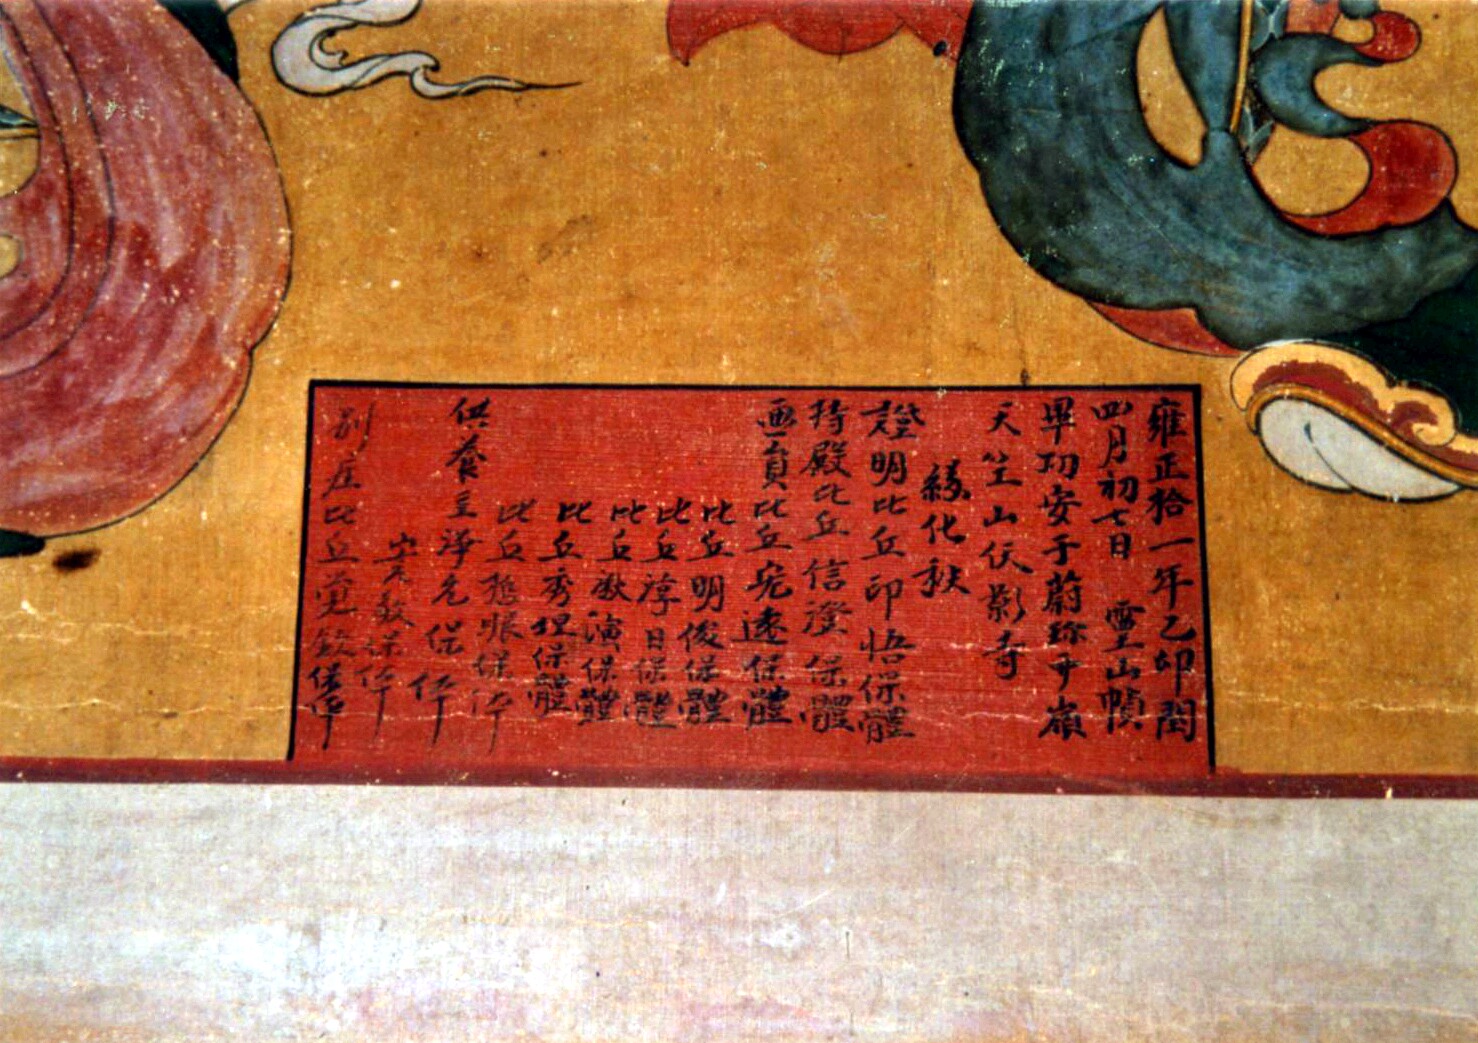 雍正拾一年乙卯閏
四月初七日 靈山幀
畢功安于蔚珎乎嶺
天竺山伏影寺
緣化秩
證明比丘印悟保體
持殿比丘信澄保體
畫員比丘宛遠保體
比丘明俊保體
比丘淳日保體
比丘演保體
比丘秀理保體
比丘眼保体
供養主淨允保体
敎保体
別座比丘覚欽保体